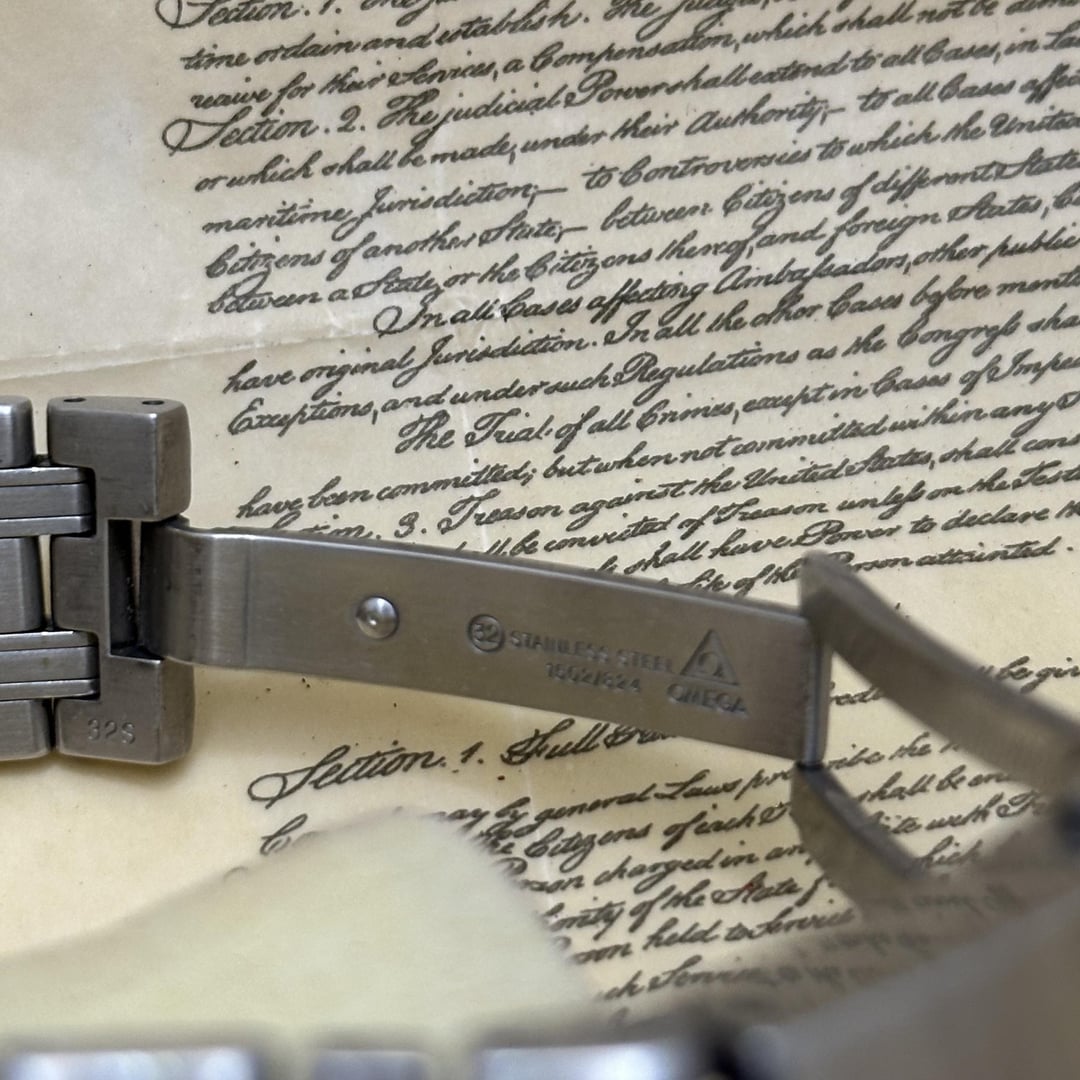 Section. 1.
time ordain and establish. The Judges,
receive for their Services, a Compensation, which shall not be
Section. 2. The judicial Power shall extend to all Cases, in Law
or which shall be made, under their Authority;— to all Cases affec
maritime Jurisdiction;— to Controversies to which the United
Citizens of another State;— between Citizens of different States
between a State, or the Citizens thereof, and foreign States, Ci
In all Cases affecting Ambassadors, other public
have original Jurisdiction. In all the other Cases before menti
Exceptions, and under such Regulations as the Congress sha
The Trial of all Crimes, except in Cases of Impea
have been committed; but when not committed within any S
3. Treason against the United States, shall cons
ll be convicted of Treason unless on the Testi
shall have Power to declare th
Life of the Person attainted.
32 STAINLESS STEEL Ω
1502/824 OMEGA
32S
be giv
Section. 1. Full
may by general Laws prescribe the
the Citizens of each shall be en
Person charged in any
ority of the State
held to Service
Service